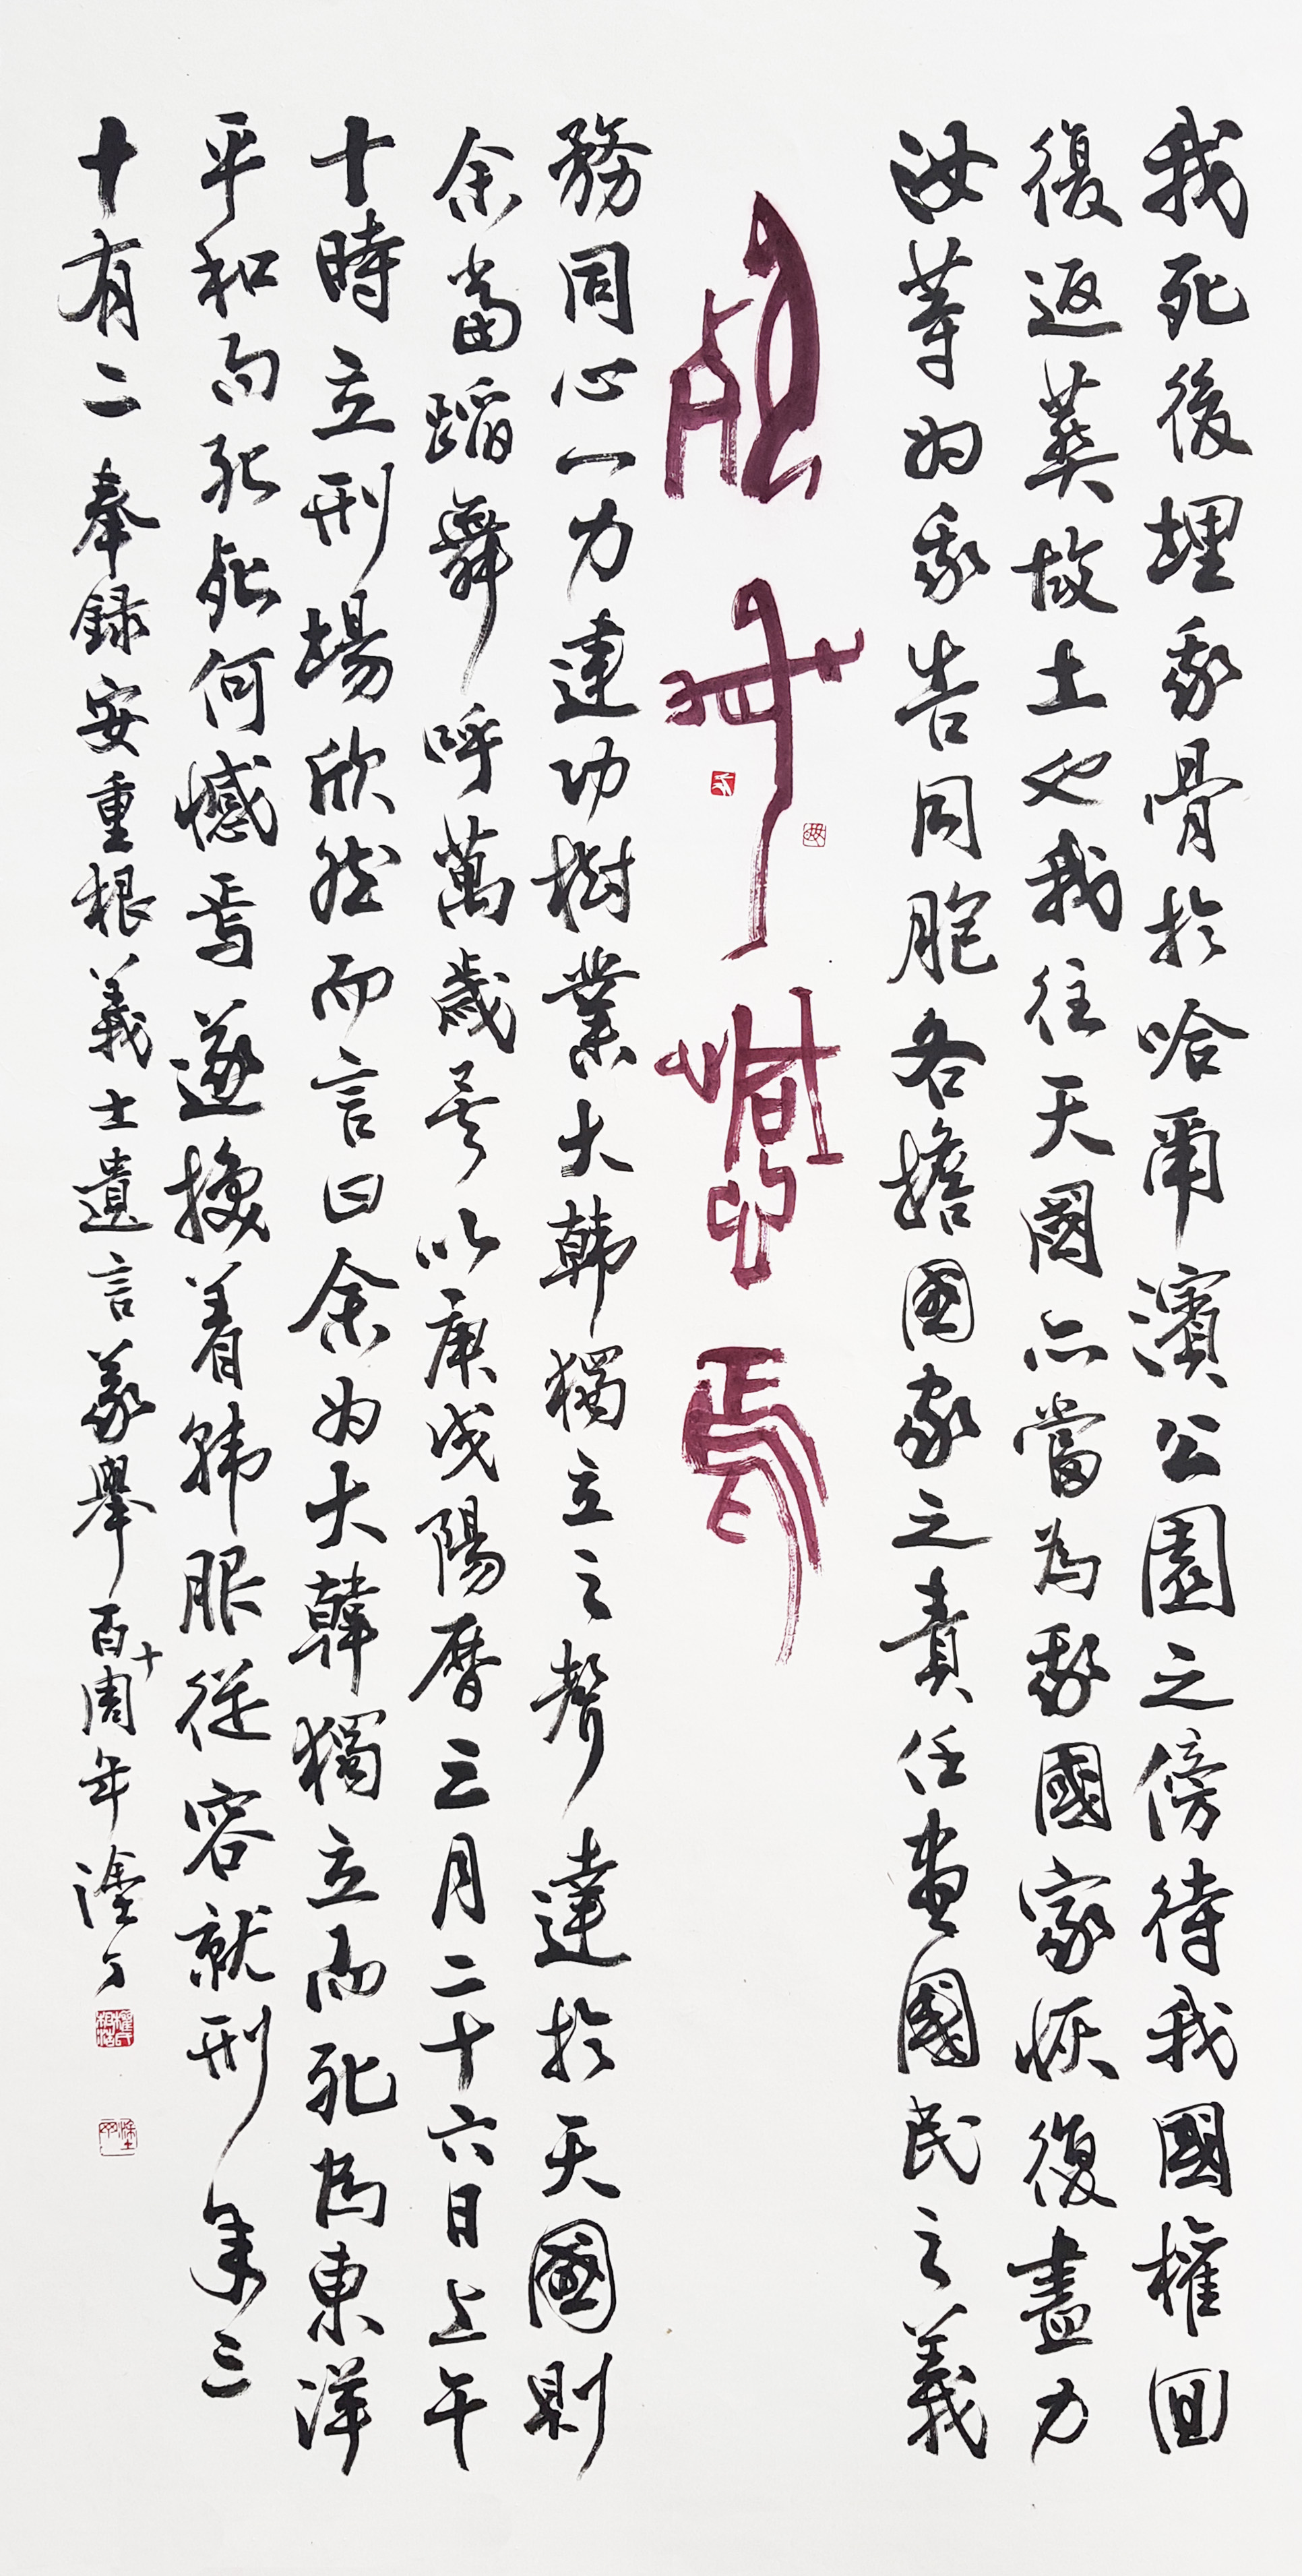 我死後埋我骨於哈爾濱公園之傍待我國權回
復返葬故土也我往天國亦當為我國家恢復盡力
汝等為我告同胞各擔國家之責任盡國民之義
死毋憾焉
務同心一力建功樹業大韓獨立之聲達於天國則
余當蹈舞呼萬歲矣以庚戌陽曆三月二十六日上午
十時立刑場欣然而言曰余為大韓獨立而死為東洋
平和而死死何憾焉遂換着韓服從容就刑年三
十有二奉錄安重根義士遺言義擧百十周年塗丁